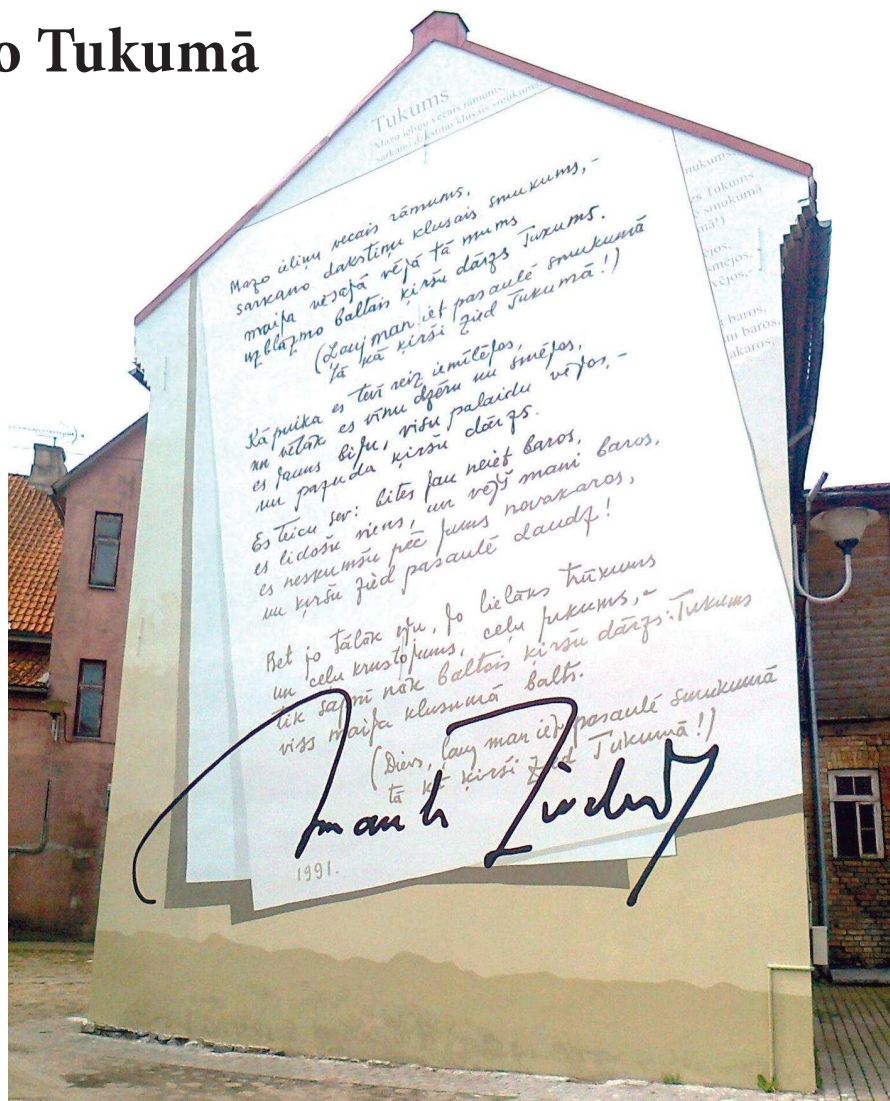 o Tukumā
Tukums
Mazo ieliņu vecais rāmums,
sarkano dakstiņu klusais smukums
Mazo ieliņu vecais rāmums,
sarkano dakstiņu klusais smukums, -
maija vēsajā vējā tā mums
uzblāzmo baltais ķiršu dārzs Tukums.
(Ļauj man iet pasaulē smukumā
tā kā ķirši zied Tukumā!)
Kā puika es tevī reiz iemīlējos,
un vēlāk es vīnu dzēru un smējos,
es jauns biju, visu palaidu vējos, -
nu pazuda ķiršu dārzs.
Es teicu sev: bites jau neiet baros,
es lidošu viens, un vējš mani baros,
es neskumšu pēc jums novakaros,
nu ķiršu zied pasaulē daudz!
Bet jo tālāk eju, jo lielāks trūkums
un ceļu krustojums, ceļu jukums, -
tik sapnī nāk baltais ķiršu dārzs: Tukums
viss maija klusumā balts.
(Dievs, ļauj man iet pasaulē smukumā
tā kā ķirši zied Tukumā!)
Imants Ziedonis
1991.
nukums
s Tukums
smukumā
mā!)
ējos,
smējos,
vējos,-
baros,
ni baros,
akaros,